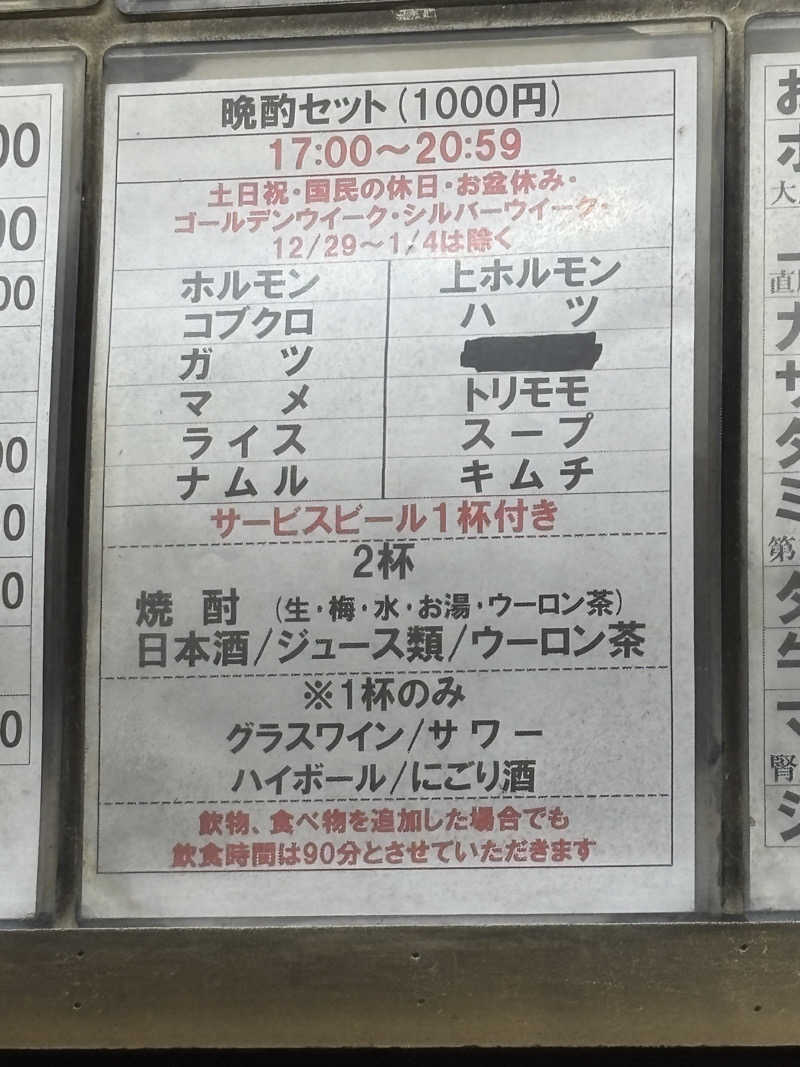 晩酌セット(1000円)
17:00～20:59
土日祝・国民の休日・お盆休み・
ゴールデンウイーク・シルバーウイーク・
12/29～1/4は除く
ホルモン 上ホルモン
コブクロ ハツ
ガツ
マメ トリモモ
ライス スープ
ナムル キムチ
サービスビール1杯付き
2杯
焼酎 (生・梅・水・お湯・ウーロン茶)
日本酒/ジュース類/ウーロン茶
※1杯のみ
グラスワイン/サワー
ハイボール/にごり酒
飲物、食べ物を追加した場合でも
飲食時間は90分とさせていただきます